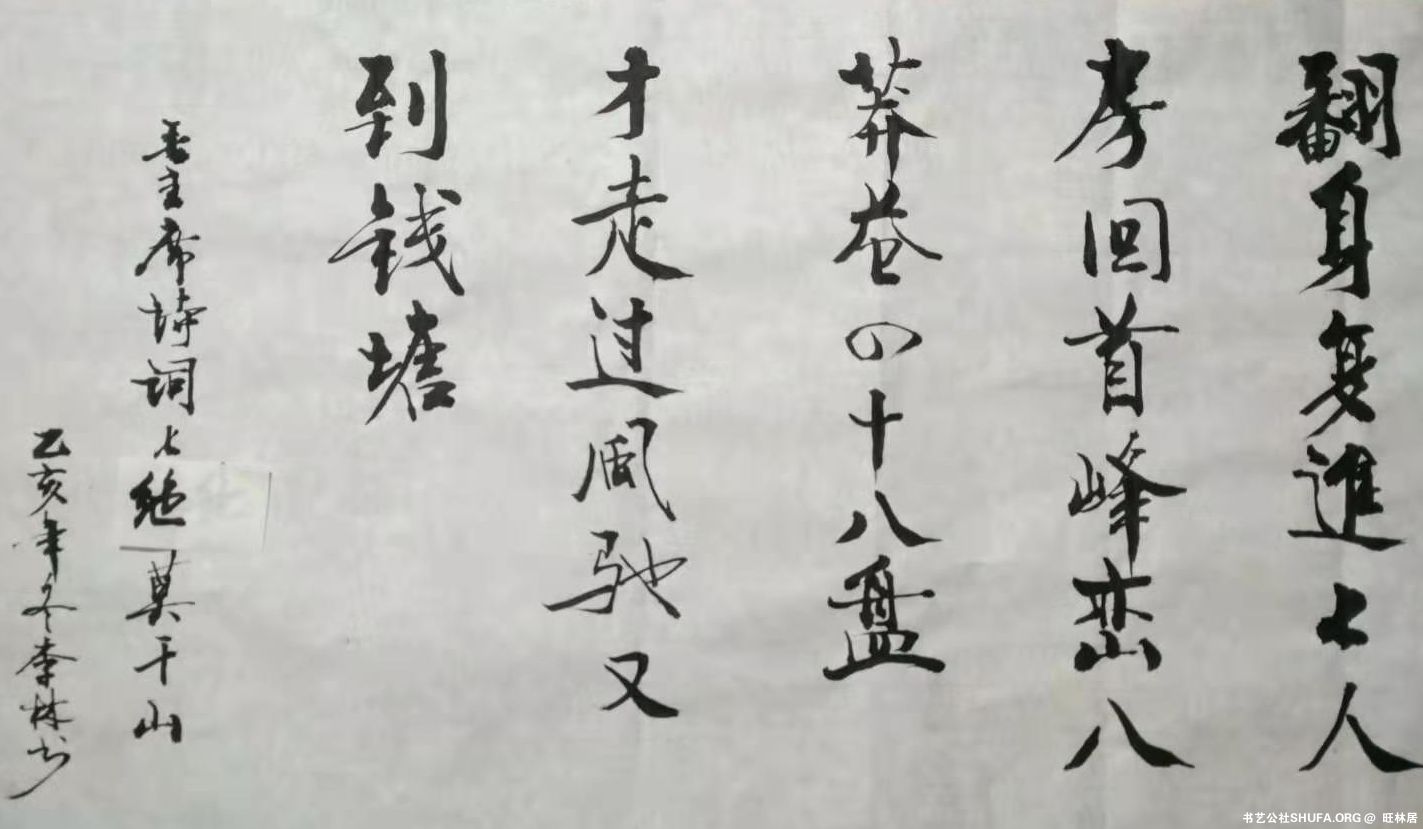 翻身复進七人
房回首峰峦八
莽苍四十八盘
才走过風驰又
到钱塘
主席诗词七绝莫干山
乙亥年冬李林书
书艺公社SHUFA.ORG @ 旺林居